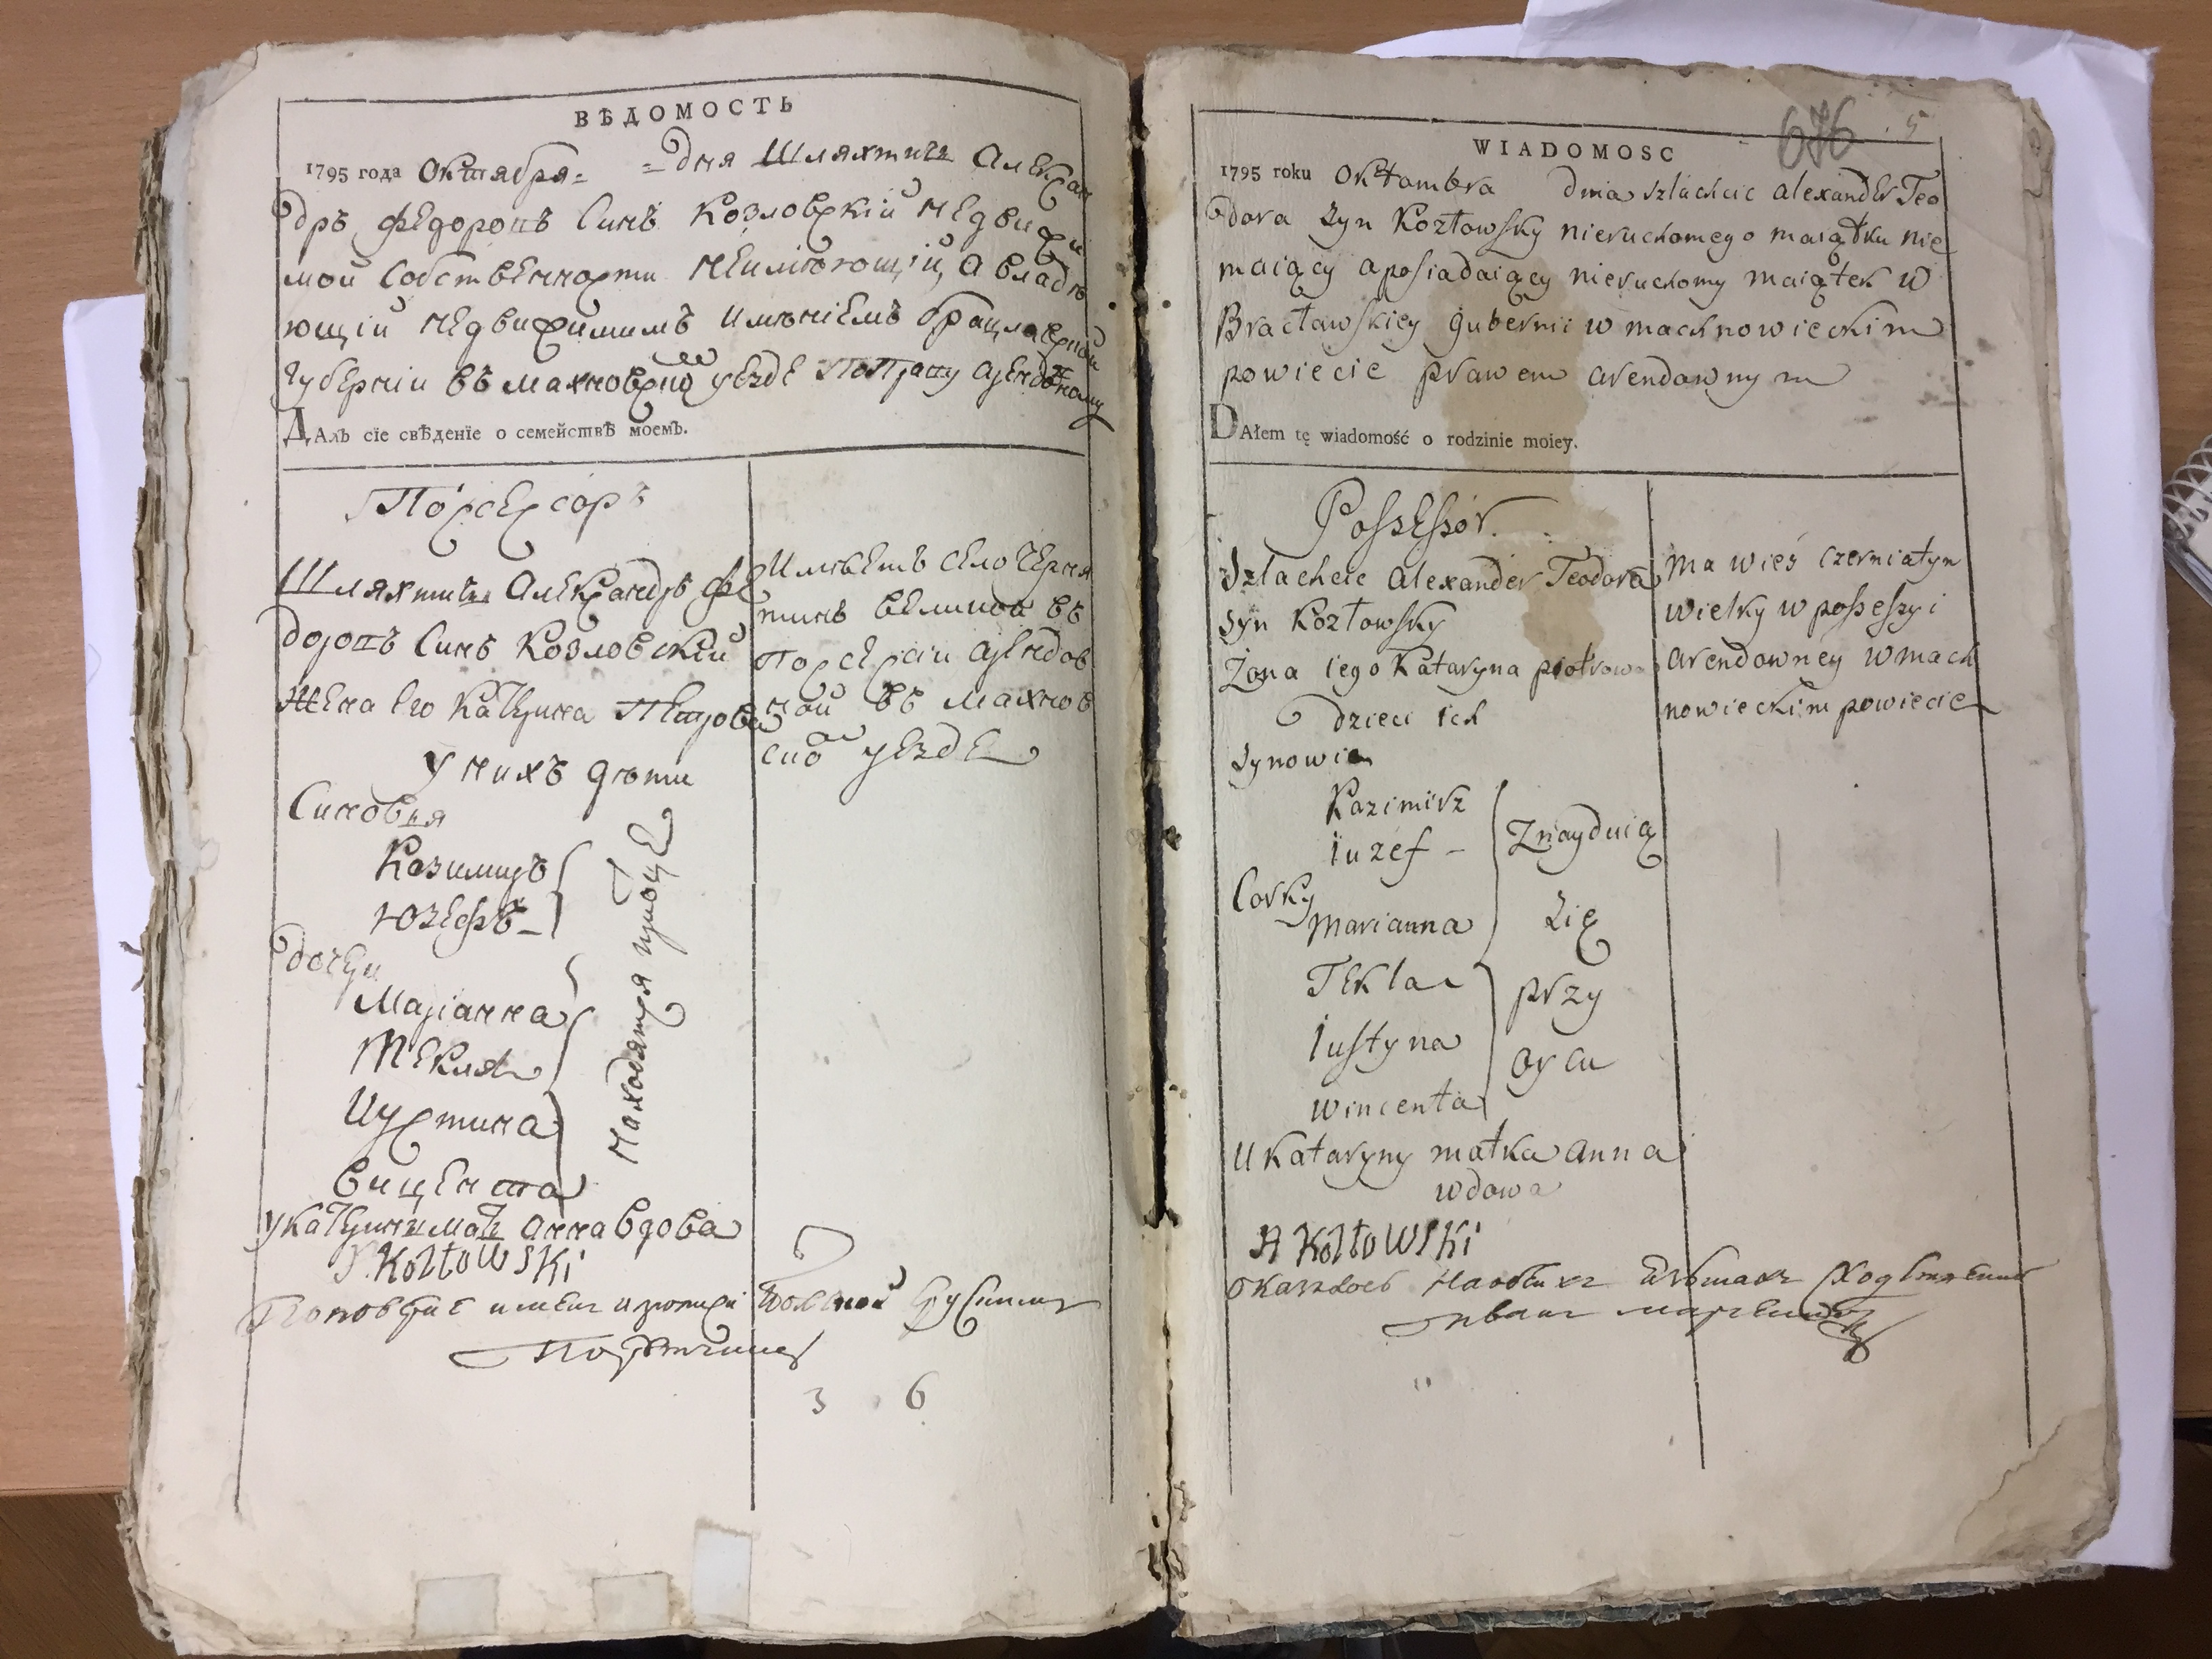 ВѢДОМОСТЬ
1795 года Октября = = дня Шляхтичъ Алексан
дръ Федоровъ Синъ Козловскій недвижи
мой собственности неимѣющій, а владѣ
ющій недвижимимъ имѣніемъ брацлавской
губерніи въ махновской уезде по праву арендовному
ДАлъ сїе свѣденїе о семействѣ моемъ.
Поссессоръ
Шляхтичъ Александръ Фе
доровъ Синъ Козловскій
Жена его Катерина Петрова
у нихъ дѣти
Синовья
Казимиръ
Юзефъ -
дочери
Маріанна
Текля
Иустина
Вицента
Находятся при отце
у Катерини мать анна вдова
Имѣетъ село Черня
тинъ великой въ
поссессіи арендов
ной въ махнов
ской уезде
A. KozłowSKi
3 6
676 5
WIADOMOSC
1795 roku Oktambra dnia szlachcic alexander Teo
dora Syn Kozłowsky nieruchomego maiątku nie
maiący a posiadaiący nieruchomy maiątek w
Bracławskiey gubernii w machnowieckim
powiecie prawem arendownym
DAłem tę wiadomość o rodzinie moiey.
Possessor.
Szlachcic alexander Teodora
syn Kozłowsky
Zona iego Kataryna piotrowa
dzieci ich
synowie
Kazimirz
iuzef -
Corky
Marianna
Tekla
iustyna
wincenta
Znayduią
Się
przy
oycu
u Kataryny matka anna
wdowa
Ma wieś Czerniatyn
wielky w possessyi
arendowney w mach
nowieckim powiecie
A KozłoWSKi